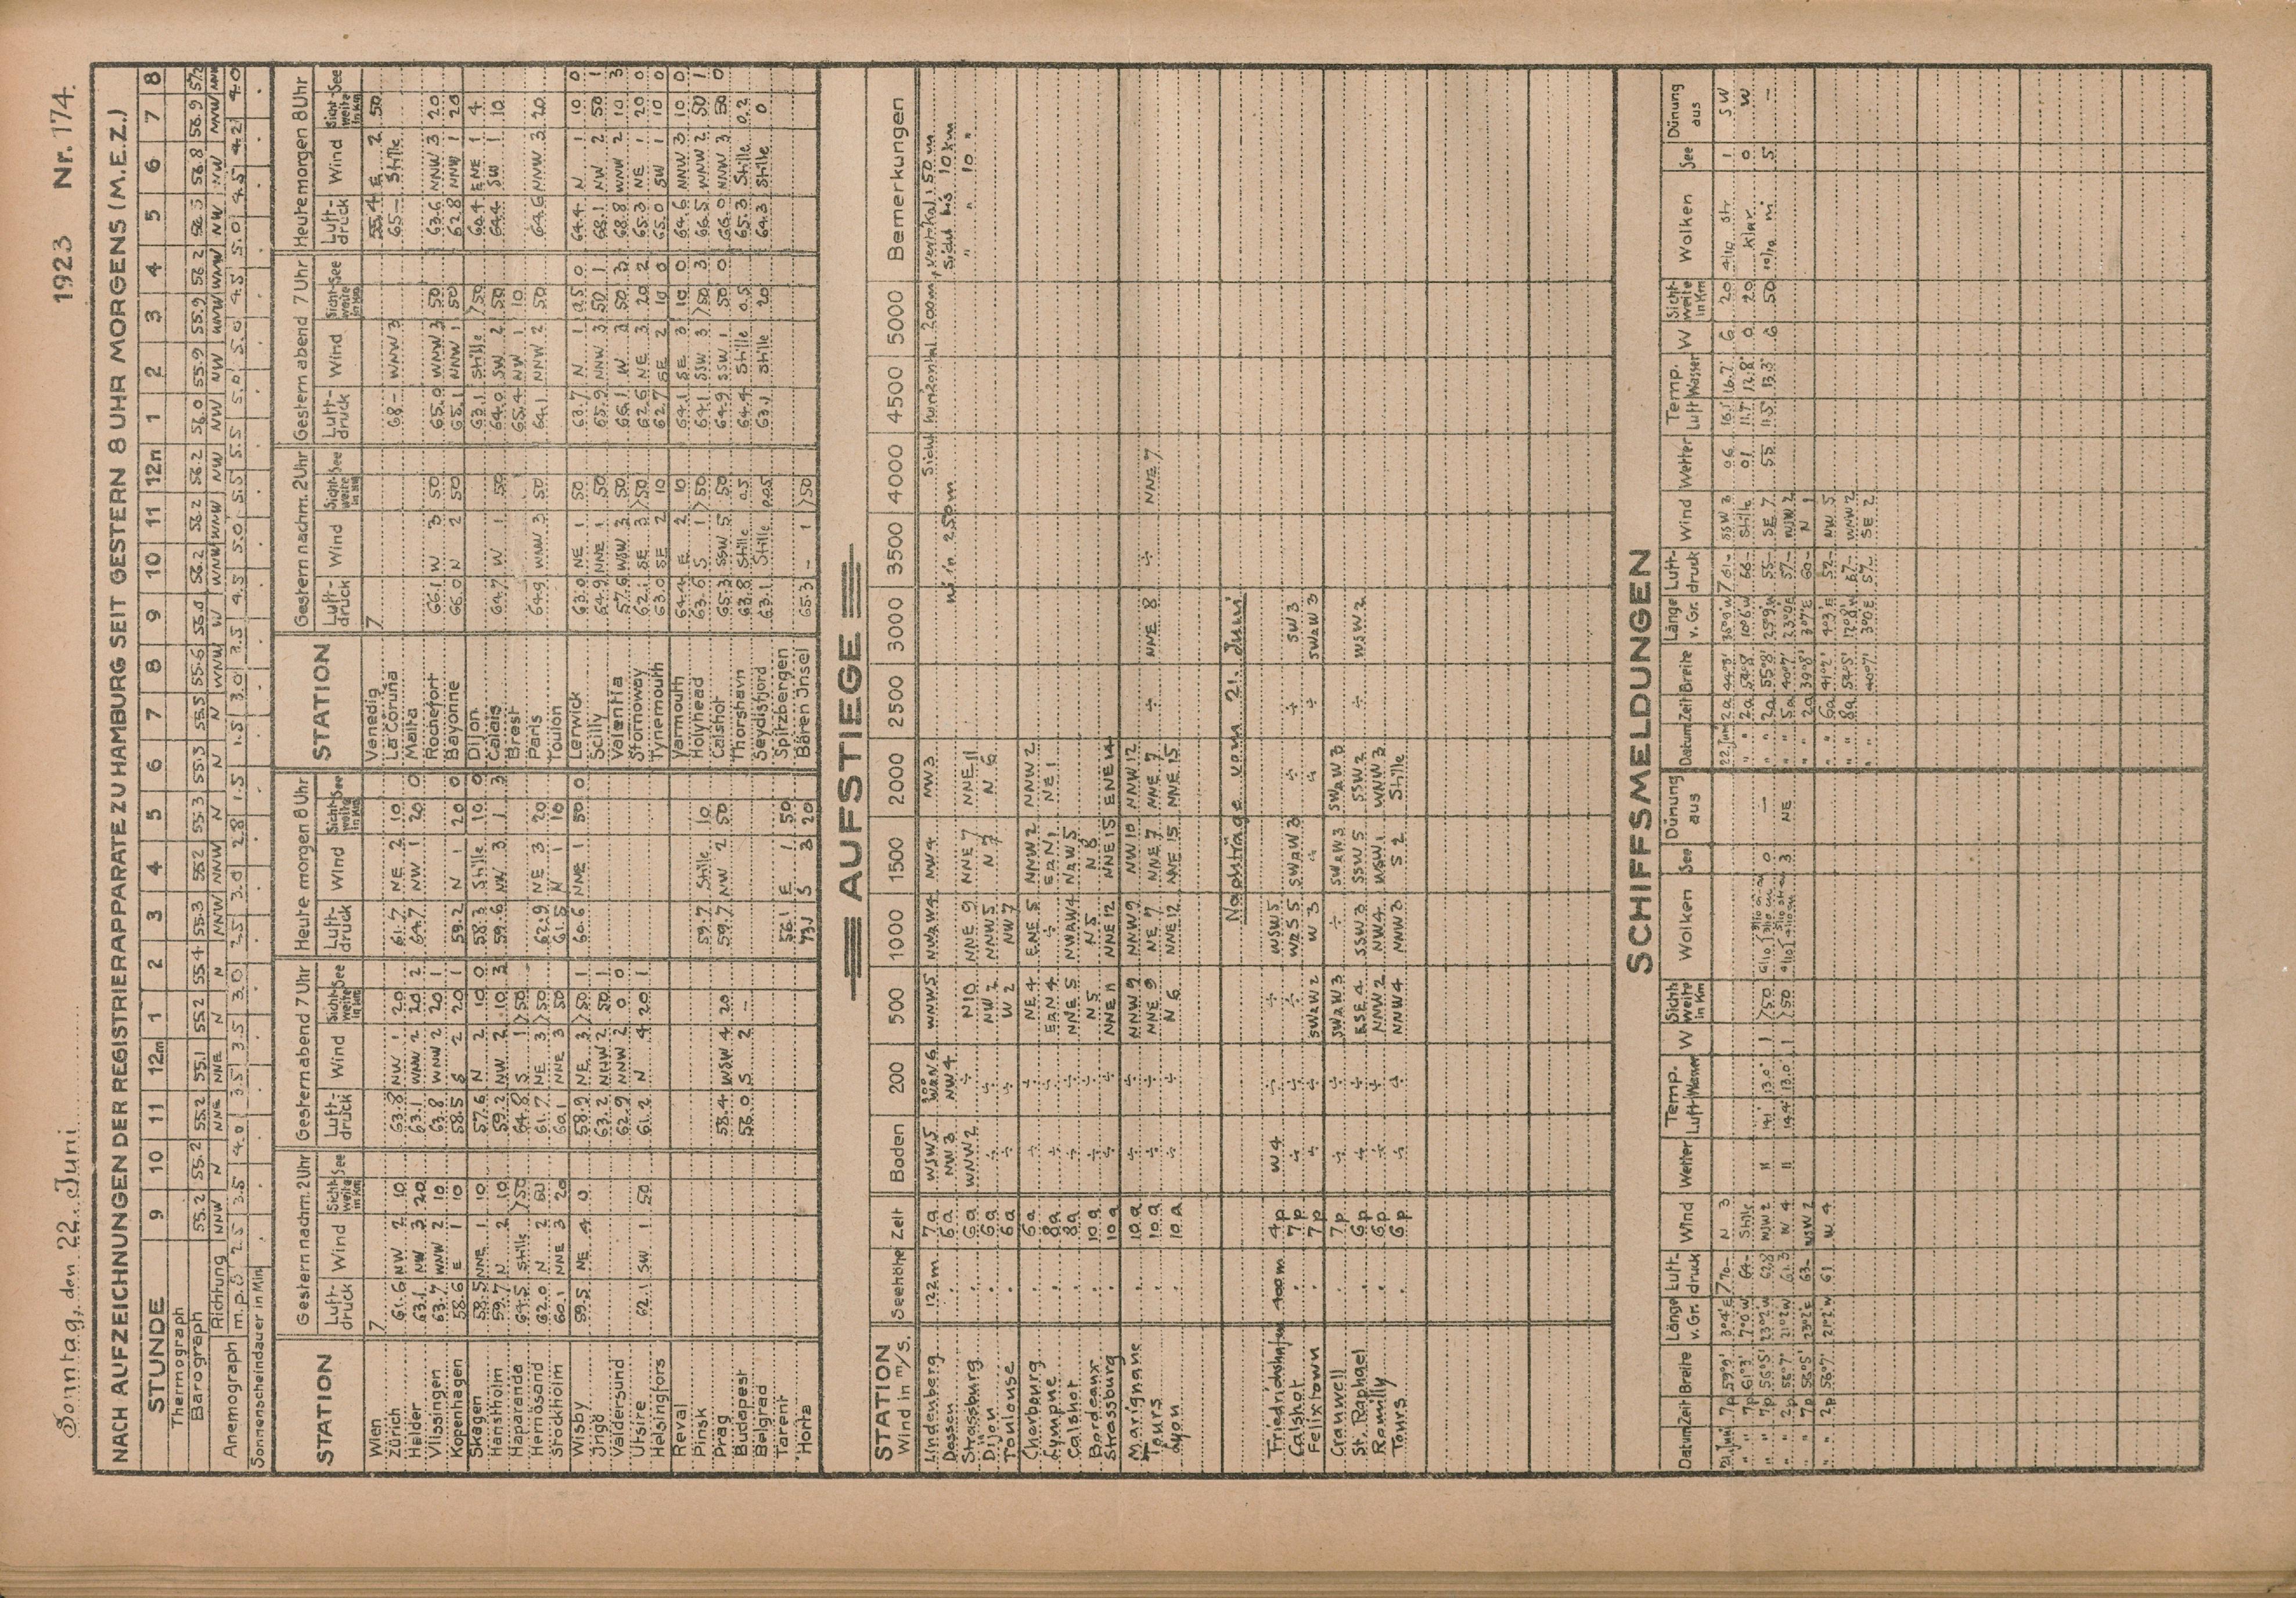 Sonntag, den 22. Juni 1923 Nr. 174.
NACH AUFZEICHNUNGEN DER REGISTRIERAPPARATE ZU HAMBURG SEIT GESTERN 8 UHR MORGENS (M.E.Z.)
STUNDE 9 10 11 12m 1 2 3 4 5 6 7 8 9 10 11 12n 1 2 3 4 5 6 7 8
Thermograph
Barograph 55.2 55.2 55.2 55.1 55.2 55.4 55.3 55.2 55.3 55.3 55.5 55.6 56.0 56.2 56.2 56.2 56.0 55.9 55.9 56.2 56.5 56.8 56.9 57.2
Anemograph Richtung NNW N NNE NNE N N NNW NNW N N N WNW W WNW WNW NW NW NW WNW WNW NW NW NNW NNW
m.p.s 2.5 3.5 4.0 3.5 3.5 3.0 2.5 3.0 2.8 1.5 1.5 3.0 3.5 4.5 5.0 5.5 5.5 5.0 5.0 4.5 5.0 4.5 4.2 4.0
Sonnenscheindauer in Min.
STATION Gestern nachm. 2 Uhr Gestern abend 7 Uhr Heute morgen 8 Uhr
Luftdruck Wind Sichtweite in Km See Luftdruck Wind Sichtweite in Km See Luftdruck Wind Sichtweite in Km See
Wien 7
Zürich 61.6 NW 2 10 63.8 NW 1 20 61.7 NE 2 10
Helder 63.1 NW 3 20 63.1 WNW 2 20 2 64.7 NW 1 20 0
Vlissingen 63.7 WNW 2 10 63.8 WNW 2 20 1
Kopenhagen 58.6 E 1 10 58.5 S 2 20 1 59.2 N 1 20 0
Skagen 58.5 NNE 1 10 57.6 N 2 10 0 58.3 Stille 10 0
Hanstholm 59.7 N 2 10 59.2 NW 2 10 3 59.6 NW 3 1 3
Haparanda 64.5 Stille >50 64.8 S 1 >50
Hernösand 62.0 N 2 50 61.7 NE 3 >50 62.9 NE 3 20
Stockholm 60.1 NNE 3 20 60.1 NNE 3 50 61.5 N 1 10
Wisby 59.5 NE 4 0 58.9 NE 3 >50 1 60.6 NNE 1 50 0
Ingö 63.2 NNW 2 50 1
Valdersund 62.9 NNW 2 0 0
Utsire 62.1 SW 1 50 61.2 N 4 20 1
Helsingfors
Reval
Pinsk 59.7 Stille 10
Prag 58.4 WSW 4 20 59.7 NW 2 50
Budapest 56.0 S 2 -
Belgrad
Tarent 56.1 E 1 50
Horta 73.1 S 3 20
STATION Gestern nachm. 2 Uhr Gestern abend 7 Uhr Heute morgen 8 Uhr
Luftdruck Wind Sichtweite in Km See Luftdruck Wind Sichtweite in Km See Luftdruck Wind Sichtweite in Km See
Venedig 7 55.4 E 2 50
La Coruna 68.- WNW 3 65.- Stille
Malta
Rochefort 66.1 W 3 50 65.0 WNW 3 50 63.6 NNW 3 20
Bayonne 66.0 N 2 50 65.1 NNW 1 50 62.8 NNW 1 20
Dijon 63.1 Stille >50 60.4 ENE 1 4
Calais 64.7 W 1 50 64.0 SW 2 50 64.4 SW 1 10
Brest 65.4 NW 1 10
Paris 64.9 WNW 3 50 64.1 NNW 2 50 64.6 NNW 3 20
Toulon
Lerwick 63.0 NE 1 50 63.7 N 1 0.5 0 64.4 N 1 10 0
Scilly 64.9 NNE 1 50 65.9 NNW 3 50 1 68.1 NW 2 50 1
Valentia 57.6 WSW 2 50 66.1 W 3 50 3 68.8 WNW 2 10 3
Stornoway 62.1 SE 3 >50 62.6 NE 3 20 2 65.3 NE 1 20 0
Tynemouth 63.0 SE 2 10 62.7 SE 2 10 0 65.0 SW 1 10 0
Yarmouth 64.4 E 2 10 64.1 SE 3 10 0 64.6 NNW 3 10 0
Holyhead 63.6 S 1 >50 64.1 SSW 3 >50 3 66.5 WNW 2 50 1
Calshot 65.3 SSW 5 50 64.9 SSW 1 50 0 66.0 NNW 3 50 0
Thorshavn 63.8 Stille 0.5 64.4 Stille 0.5 65.3 Stille 0.2
Seydisfjord 63.1 Stille 0.05 63.1 Stille 20 64.3 Stille 0
Spitzbergen
Bären Insel 65.3 - 1 >50
AUFSTIEGE
STATION Wind in m/s. Seehöhe Zeit Boden 200 500 1000 1500 2000 2500 3000 3500 4000 4500 5000 Bemerkungen
Lindenberg 122m 7a WSW5 WNW5 NW 4 NW3 Sicht horizontal 200m, vertikal 150 m
Dessen 6a NW 3 NW 4 in 250m Sicht bis 10 km
Strassburg 6a WNW 2 ÷ N10 NNE 9 NNE 7 NNE 11 " " 10 "
Dijon 6a ÷ ÷ NW 2 NNW5 N 7 N 6
Toulouse 6a ÷ ÷ W 2 NW 7
Cherbourg 6a ÷ ÷ NE 4 ENE 5 NNW 2 NNW 2
Lympne 8a ÷ ÷ ÷ NE 1
Calshot 8a ÷ ÷ NNE 5
Bordeaux 10a ÷ ÷ N 5 N 5 N 8
Strassburg 10a ÷ ÷ NNE 11 NNE 12 NNE 15 ENE 14
Marignane 10a ÷ ÷ NNW 9 NNW 9 NW 10 NNW 12
Tours 10a ÷ ÷ NNE 9 NE 7 NNE 7 NNE 7 ÷ NNE 8 ÷ NNE 7
Lyon 10a ÷ ÷ N 6 NNE 12 NNE 15 NNE 15
Nachträge vom 21. Juni
Friedrichshafen 400m 4p W 4 ÷ ÷ WSW5
Calshot 7p ÷ ÷ ÷ ÷ ÷ SW 3
Felixtown 7p ÷ ÷ W 3 ÷ ÷
Cranwell 7p ÷ ÷ ÷
St. Raphael 6p ÷ ÷ ESE 4 SSW 3 SSW 5 SSW 2 ÷ WSW 2
Romilly 6p ÷ ÷ NNW 2 NNW 4 WSW 1 WNW 3
Tours 6p ÷ ÷ NNW 4 NNW 3 S 2 Stille
SCHIFFSMELDUNGEN
Datum Zeit Breite Länge v. Gr. Luftdruck Wind Wetter Temp. Luft Wasser W Sichtweite in Km Wolken See Dünung aus
21. Juni 7p 59°9' 3°4'E 770- N 3
" 7p 61°3' 7°0'W 64- Stille
" 7p 56°5' 23°2'W 62.8 NW 2 " 14.1° 13.0° 1 >50 0 —
" 2p 56°7' 21°2'W 61.3 N 4 " 14.4° 13.0 1 >50 3 NE
" 7p 56°5' 23°2'E 63- WSW 2
" 2p 56°7' 21°2'W 61 W 4
Datum Zeit Breite Länge v. Gr. Luftdruck Wind Wetter Temp. Luft Wasser W Sichtweite in Km Wolken See Dünung aus
22. Juni 2a 35°9'W 761- SSW 3 06 16.1 16.7° 6 20 4/10 str. 1 SW
" 2a 54°8 10°6'W 66- Stille 01 11.7 12.8° 0 20 klar 0 W
" 2a 55°8' 25°9'W 55- SE 7 55 11.5 13.3° 6 50 10/10 ni 5 —
" 5a 40°7' 23°0'E 57- NW 2
" 2a 39°8' 3°7'E 60- N 1
" 6a 41°2' 4°3'E 52- NW 5
" 8a 54°5' 12°8'W 67- WNW 2
" 40°7' 3°0'E 57- SE 2